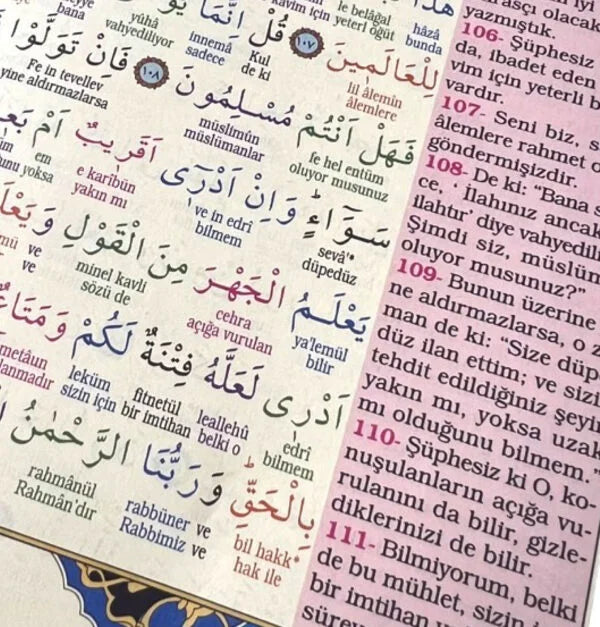 هٰذَا
le belâgal
hâzâ
kavim için yeterli öğüt
bunda
yûhâ
innemâ
vahyediliyor
sadece
bana
لِلْعَالَمٖينَ ﴿١٠٧﴾ قُلْ اِنَّمَا
lil âlemîn
Kul
âlemlere
de ki
فَهَلْ اَنْتُمْ مُسْلِمُونَ ﴿١٠٨﴾ فَاِنْ تَوَلَّوْا
fe hel entüm
müslimûn
Fe in tevellev
oluyor musunuz
müslümanlar
yine aldırmazlarsa
سَوَٓاءٍ وَاِنْ اَدْرٖٓى اَقَرٖيبٌ اَمْ
sevâ'*
ve in edrî
e karîbün
em
düpedüz
bilmem
yakın mı
yoksa
يَعْلَمُ الْجَهْرَ مِنَ الْقَوْلِ
ya'lemül
cehra
minel kavli
ve
bilir
açığa vurulan
sözü de
ve
اَدْرٖى لَعَلَّهُ فِتْنَةٌ لَكُمْ وَمَتَاعٌ
edrî
leallehû
fitnetül
leküm
metâun
bilmem
belki o
bir imtihan
sizin için
بِالْحَقِّ وَرَبُّنَا الرَّحْمٰنُ
bil hakk*
rabbüner ve
rahmânül
hak ile
Rabbimiz ve
Rahmân'dır
yazmıştık.
106- Şüphesiz
da, ibadet eden
vim için yeterli b
vardır.
107- Seni biz, s
âlemlere rahmet o
göndermişizdir.
108- De ki: "Bana s
ce, ' İlahınız ancak
ilahtır' diye vahyedili
Şimdi siz, müslüm
oluyor musunuz?"
109- Bunun üzerine
ne aldırmazlarsa, o z
man de ki: "Size düp
düz ilan ettim; ve sizi
tehdit edildiğiniz şeyin
yakın mı, yoksa uzak
mı olduğunu bilmem."
110- Şüphesiz ki O, ko-
nuşulanların açığa vu-
rulanını da bilir, gizle-
diklerinizi de bilir.
111- Bilmiyorum, belki
de bu mühlet, sizin i
bir imtihan v
sürey